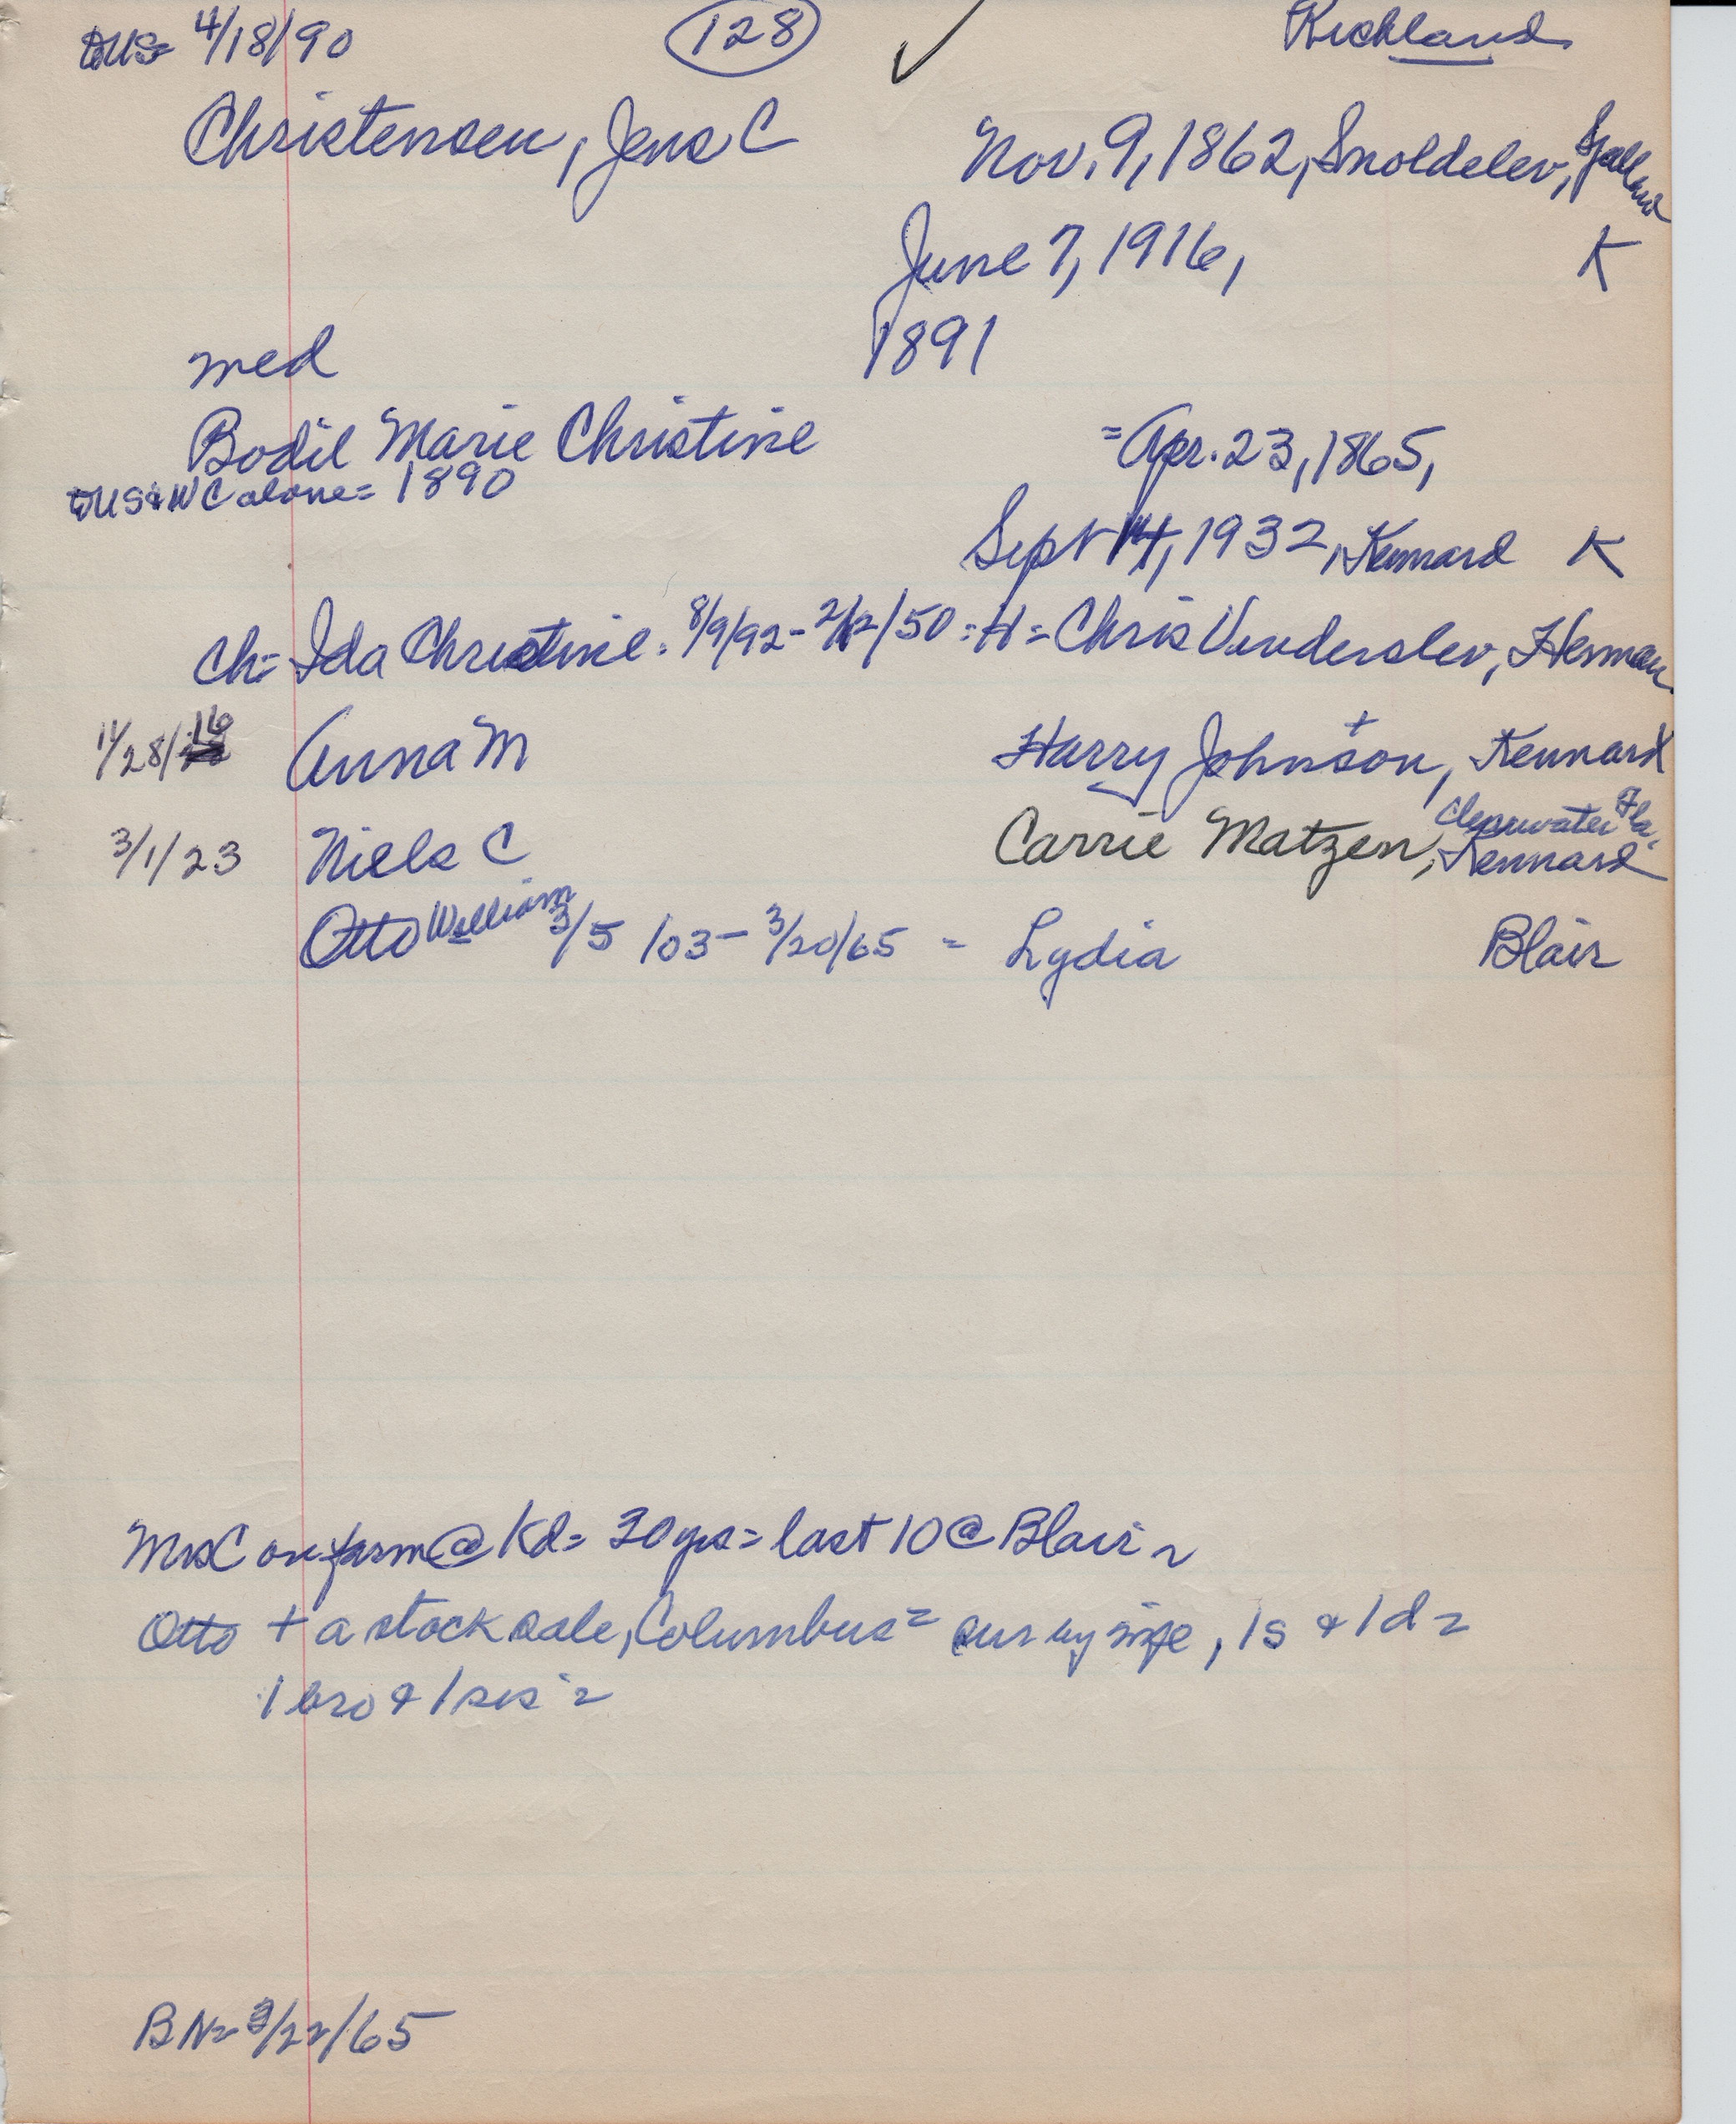 US= 4/18/90 128 ✓ Richland
Christensen, Jens C Nov. 9, 1862, Snoldelev, Sjalland
June 7, 1916, K
med 1891
Bodil Marie Christine = Apr. 23, 1865,
US & WC alone = 1890
Sept 14, 1932, Kennard K
Ch= Ida Christine. 8/9/92 - 2/12/50 = H = Chris Vinderslev, Herman
11/28/16 Anna M Harry Johnson, + Kennard
3/1/23 Niels C Carrie Matzen, Clearwater Fla. Kennard
Otto William 3/5/03 - 3/20/65 = Lydia Blair
Mrs C on farm @ Kd = 30 yrs = last 10 @ Blair
Otto + a stock sale, Columbus = sur by wife, 1s & 1d =
1 bro & 1 sis =
BN= 3/22/65